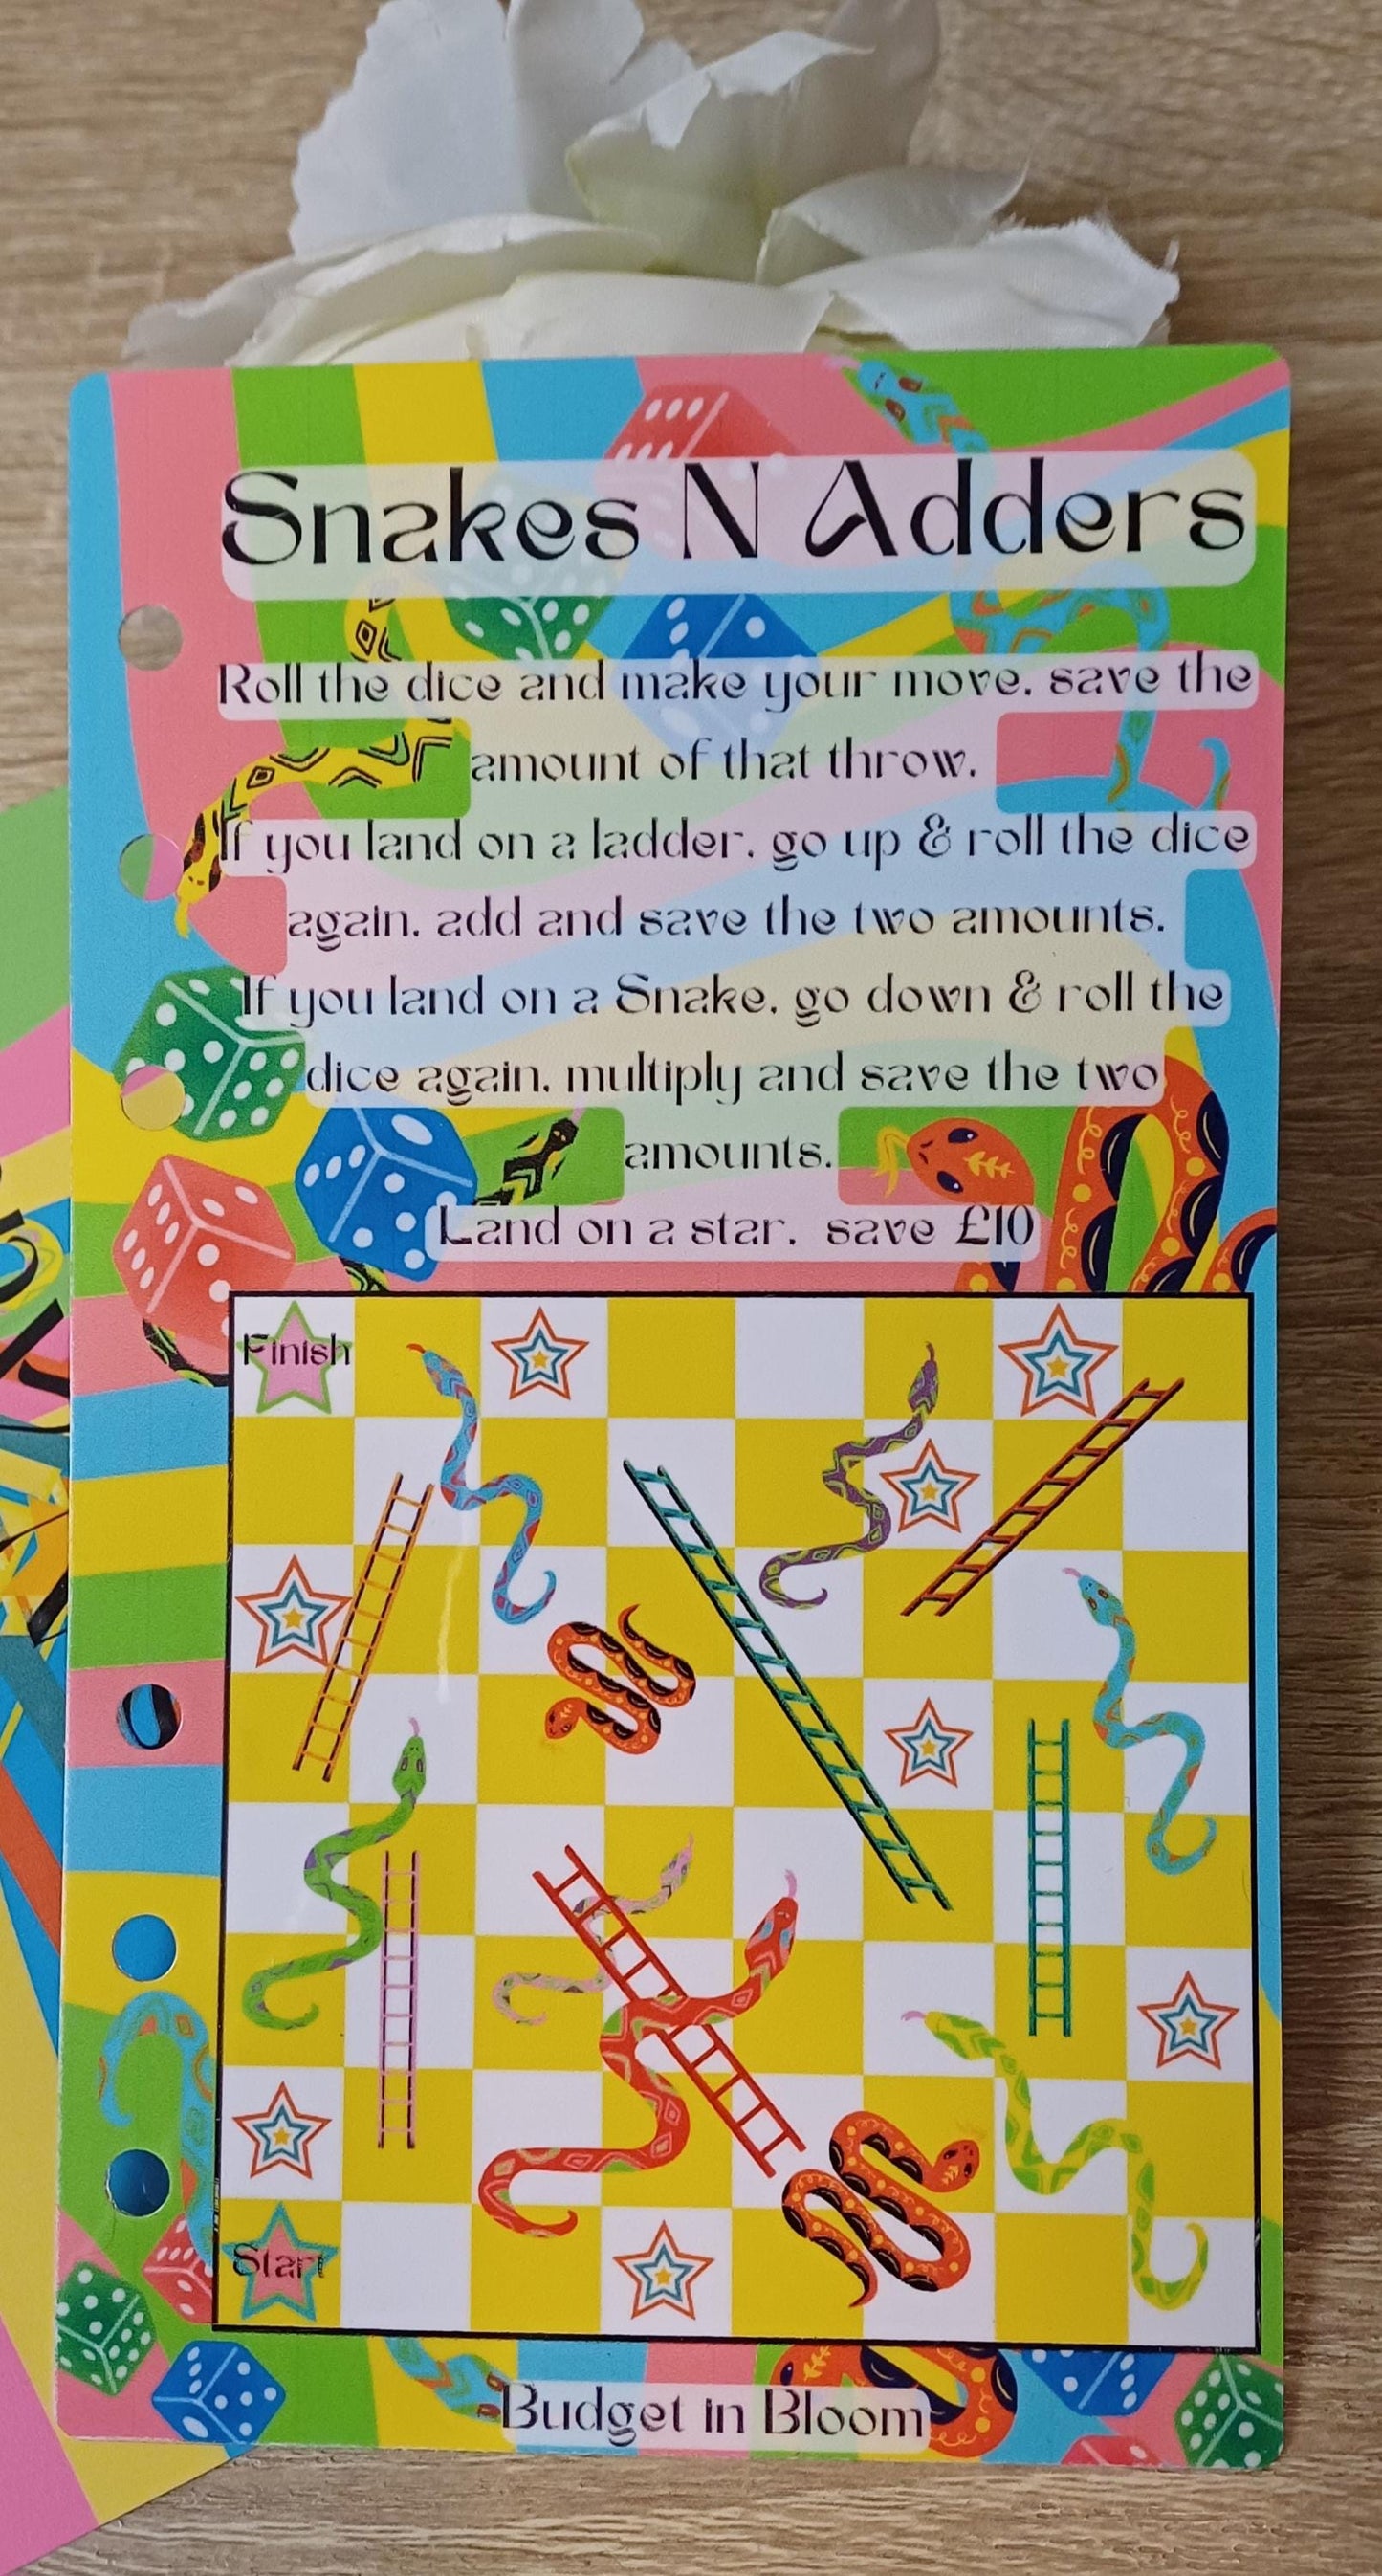 Snakes N Adders
Roll the dice and make your move. save the
amount of that throw.
If you land on a ladder. go up & roll the dice
again. add and save the two amounts.
If you land on a Snake. go down & roll the
dice again. multiply and save the two
amounts.
Land on a star. save £10
Finish
Start
Budget in Bloom